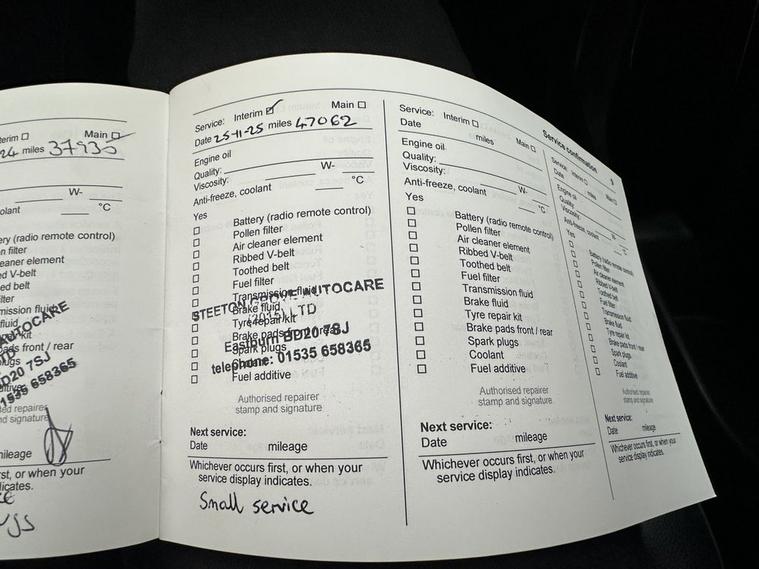 erim ☐ Main ☑
24 miles 37935
W-
olant °C
ery (radio remote control)
n filter
eaner element
ed V-belt
d belt
ilter
mission fluid
fluid
pair kit
pads front / rear
lugs
AUTOCARE
BD20 7SJ
1535 658365
sed repairer
nd signature
mileage
rst, or when your
licates.
Service: Interim ☑ Main ☐
Date 25-11-25 miles 47062
Engine oil
Quality:
Viscosity: W-
Anti-freeze, coolant °C
Yes
☐ Battery (radio remote control)
☐ Pollen filter
☐ Air cleaner element
☐ Ribbed V-belt
☐ Toothed belt
☐ Fuel filter
☐ Transmission fluid
☐ Brake fluid
☐ Tyre repair kit
☐ Brake pads front / rear
☐ Spark plugs
☐ Coolant
☐ Fuel additive
STEETON GROVE AUTOCARE
(2015) LTD
Eastburn BD20 7SJ
telephone: 01535 658365
Authorised repairer
stamp and signature
Next service:
Date mileage
Whichever occurs first, or when your
service display indicates.
Small service
Service: Interim ☐ Main ☐
Date miles
Engine oil
Quality:
Viscosity: W-
Anti-freeze, coolant °C
Yes
☐ Battery (radio remote control)
☐ Pollen filter
☐ Air cleaner element
☐ Ribbed V-belt
☐ Toothed belt
☐ Fuel filter
☐ Transmission fluid
☐ Brake fluid
☐ Tyre repair kit
☐ Brake pads front / rear
☐ Spark plugs
☐ Coolant
☐ Fuel additive
Authorised repairer
stamp and signature
Next service:
Date mileage
Whichever occurs first, or when your
service display indicates.
Service confirmation 9
Service: Interim ☐ Main ☐
Date miles
Engine oil
Quality:
Viscosity: W-
Anti-freeze, coolant °C
Yes
☐ Battery (radio remote control)
☐ Pollen filter
☐ Air cleaner element
☐ Ribbed V-belt
☐ Toothed belt
☐ Fuel filter
☐ Transmission fluid
☐ Brake fluid
☐ Tyre repair kit
☐ Brake pads front / rear
☐ Spark plugs
☐ Coolant
☐ Fuel additive
Authorised repairer
stamp and signature
Next service:
Date mileage
Whichever occurs first, or when your
service display indicates.